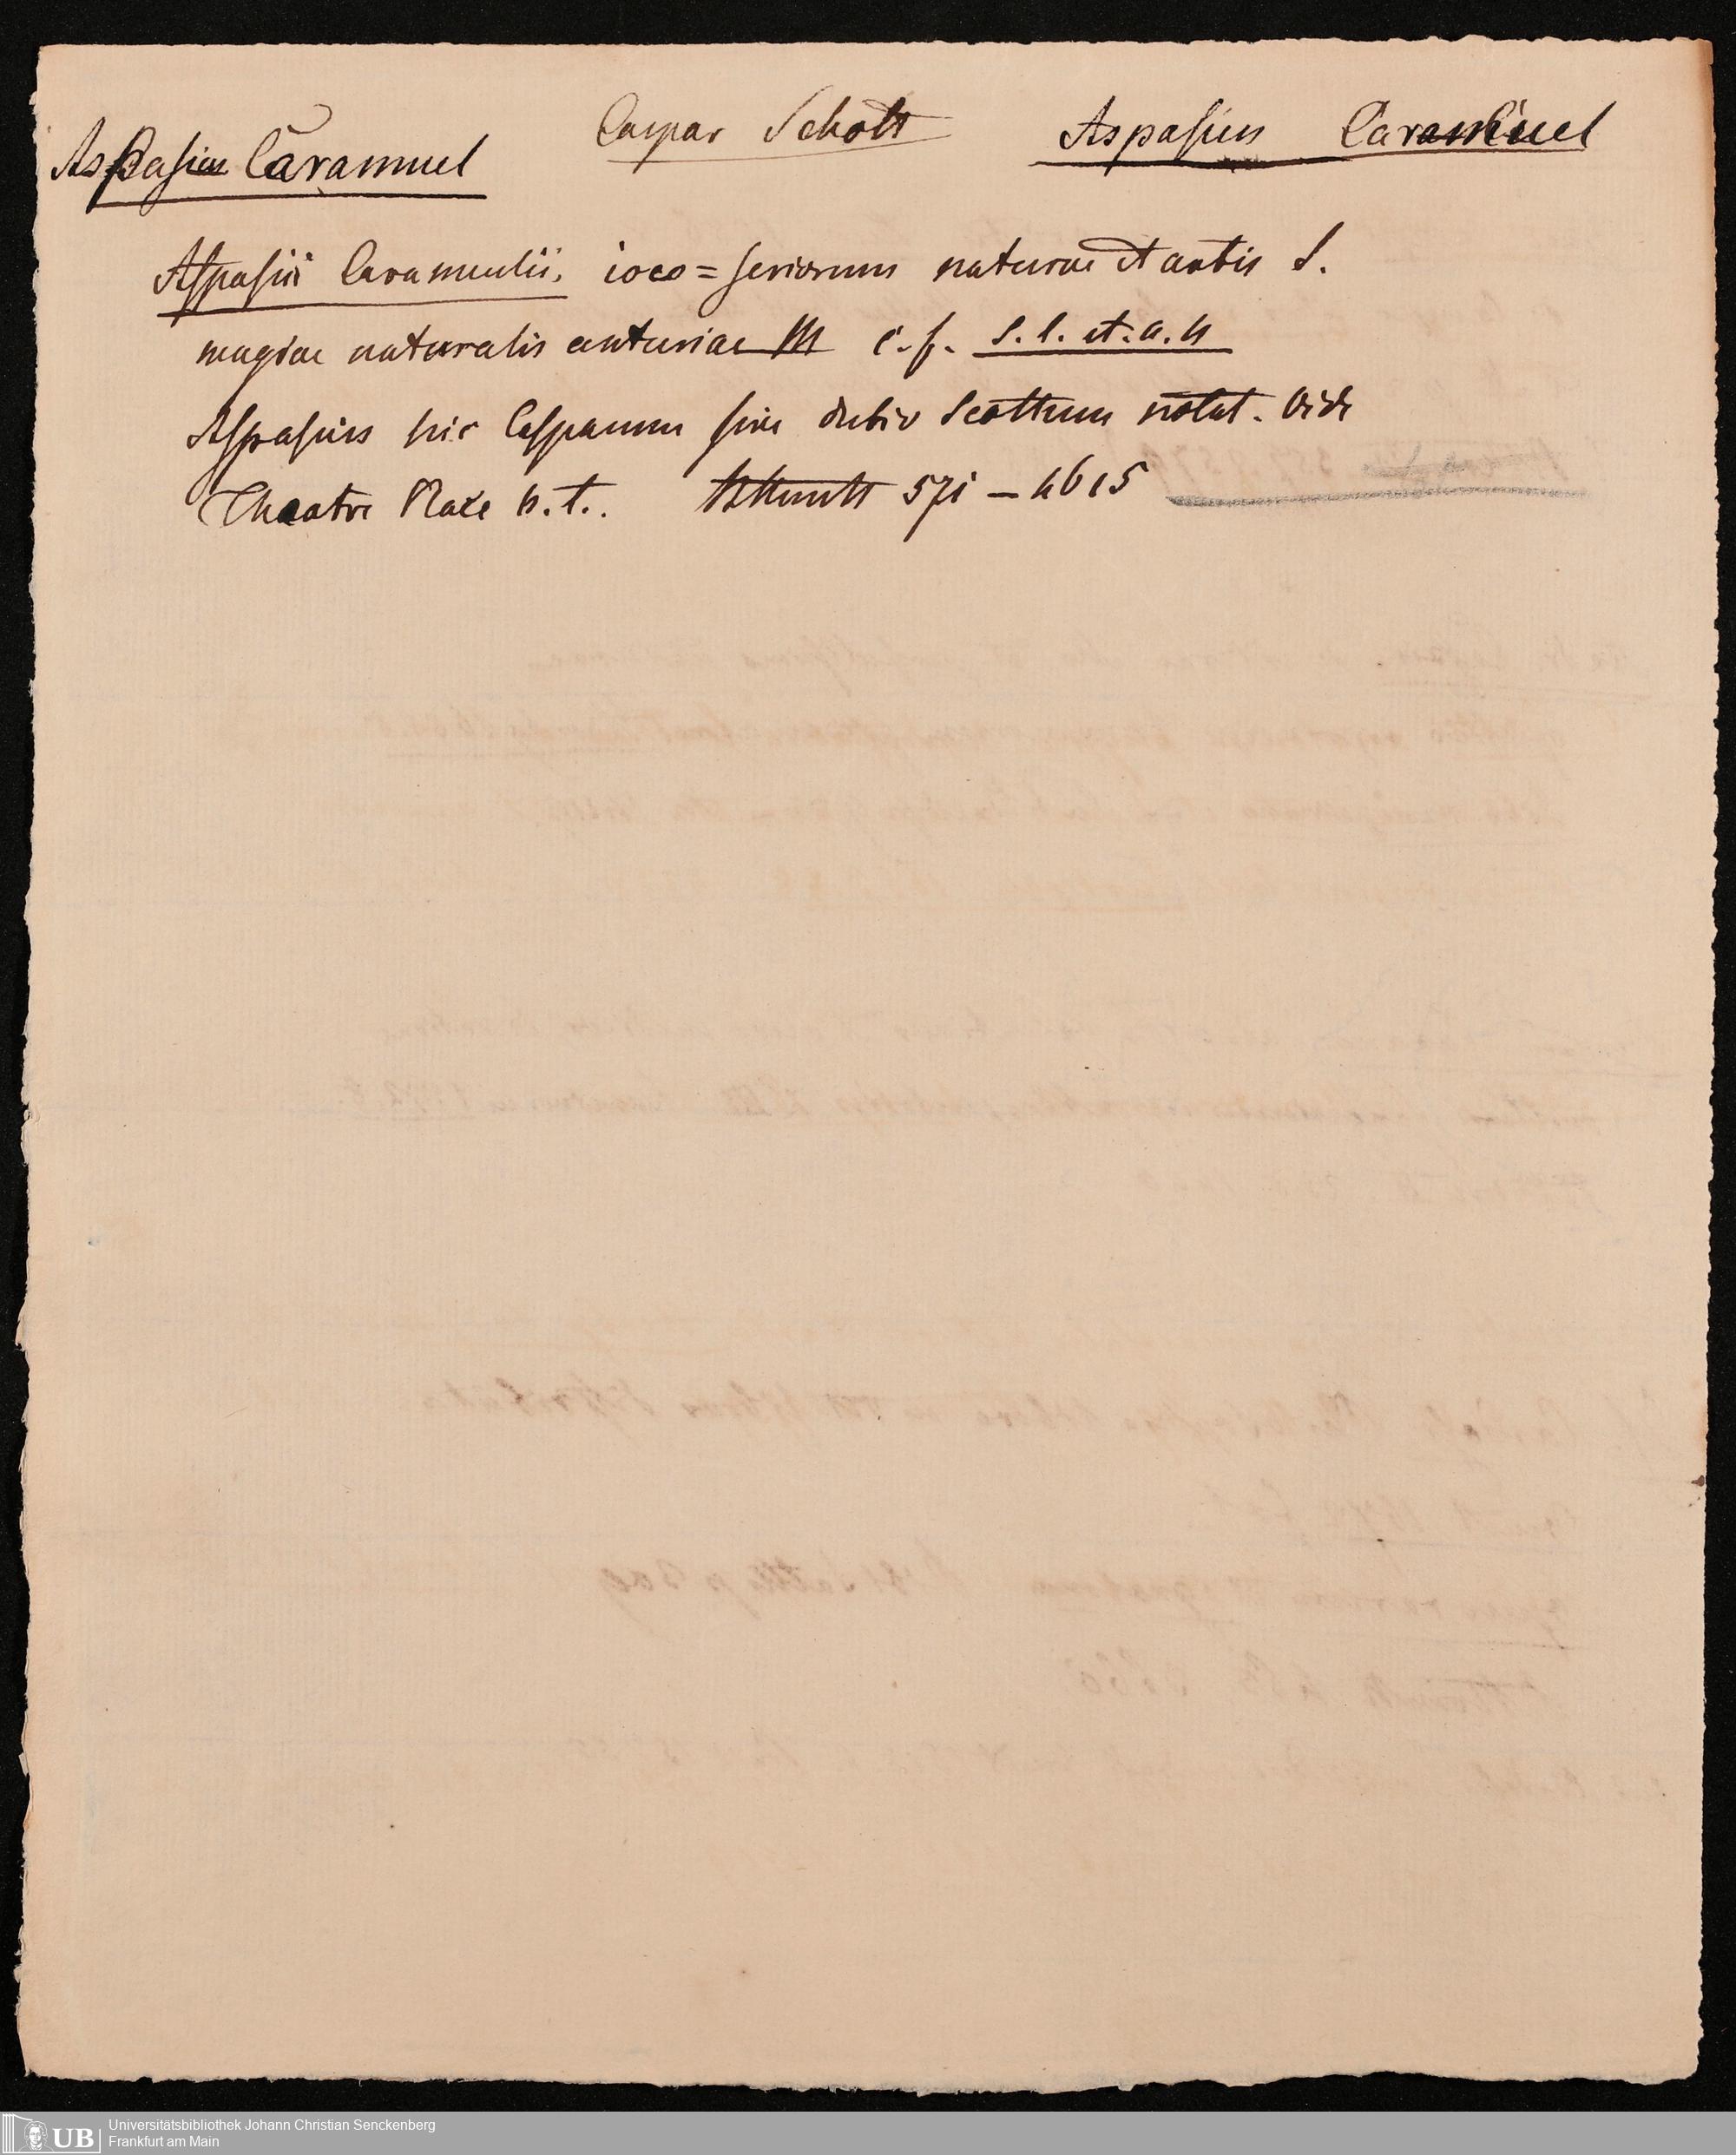 Aspasius Caramuel
Caspar Schott
Aspasius Caramuel
Aspasii Caramuelii, ioco=seriorum naturae et artis S.
magiae naturalis centuriae III c.f. s.l. et.a.h
Aspasius hic Casparum sine dubio Scottum notat. Vide
Theatr. Place p.t.. 571 – 4615
UB Universitätsbibliothek Johann Christian Senckenberg
Frankfurt am Main